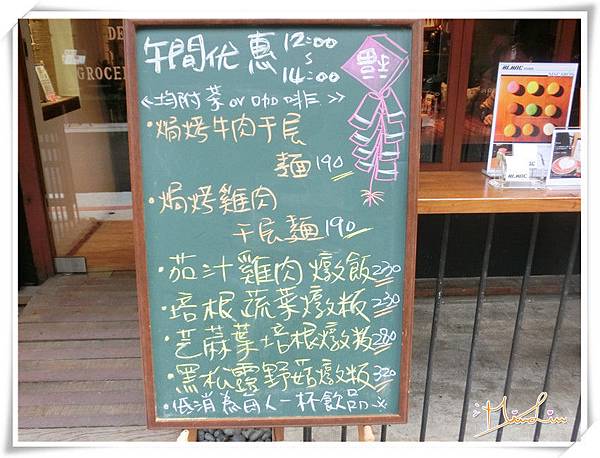 DE
GROCER
午間优惠 12:00
~
14:00
豐
<<均附茶 or 咖啡>>
·焗烤牛肉干层
麵 190
·焗烤雞肉
干层麵 190
·茄汁雞肉燉飯 230
·培根蔬菜燉飯 230
·芝蔴葉培根燉飯 280
·黑松露野菇燉飯 320
·低消為每人一杯飲品※